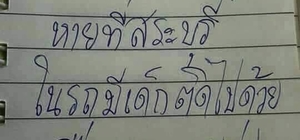 หายที่สระบุรี
ในรถมีเด็กติดไปด้วย